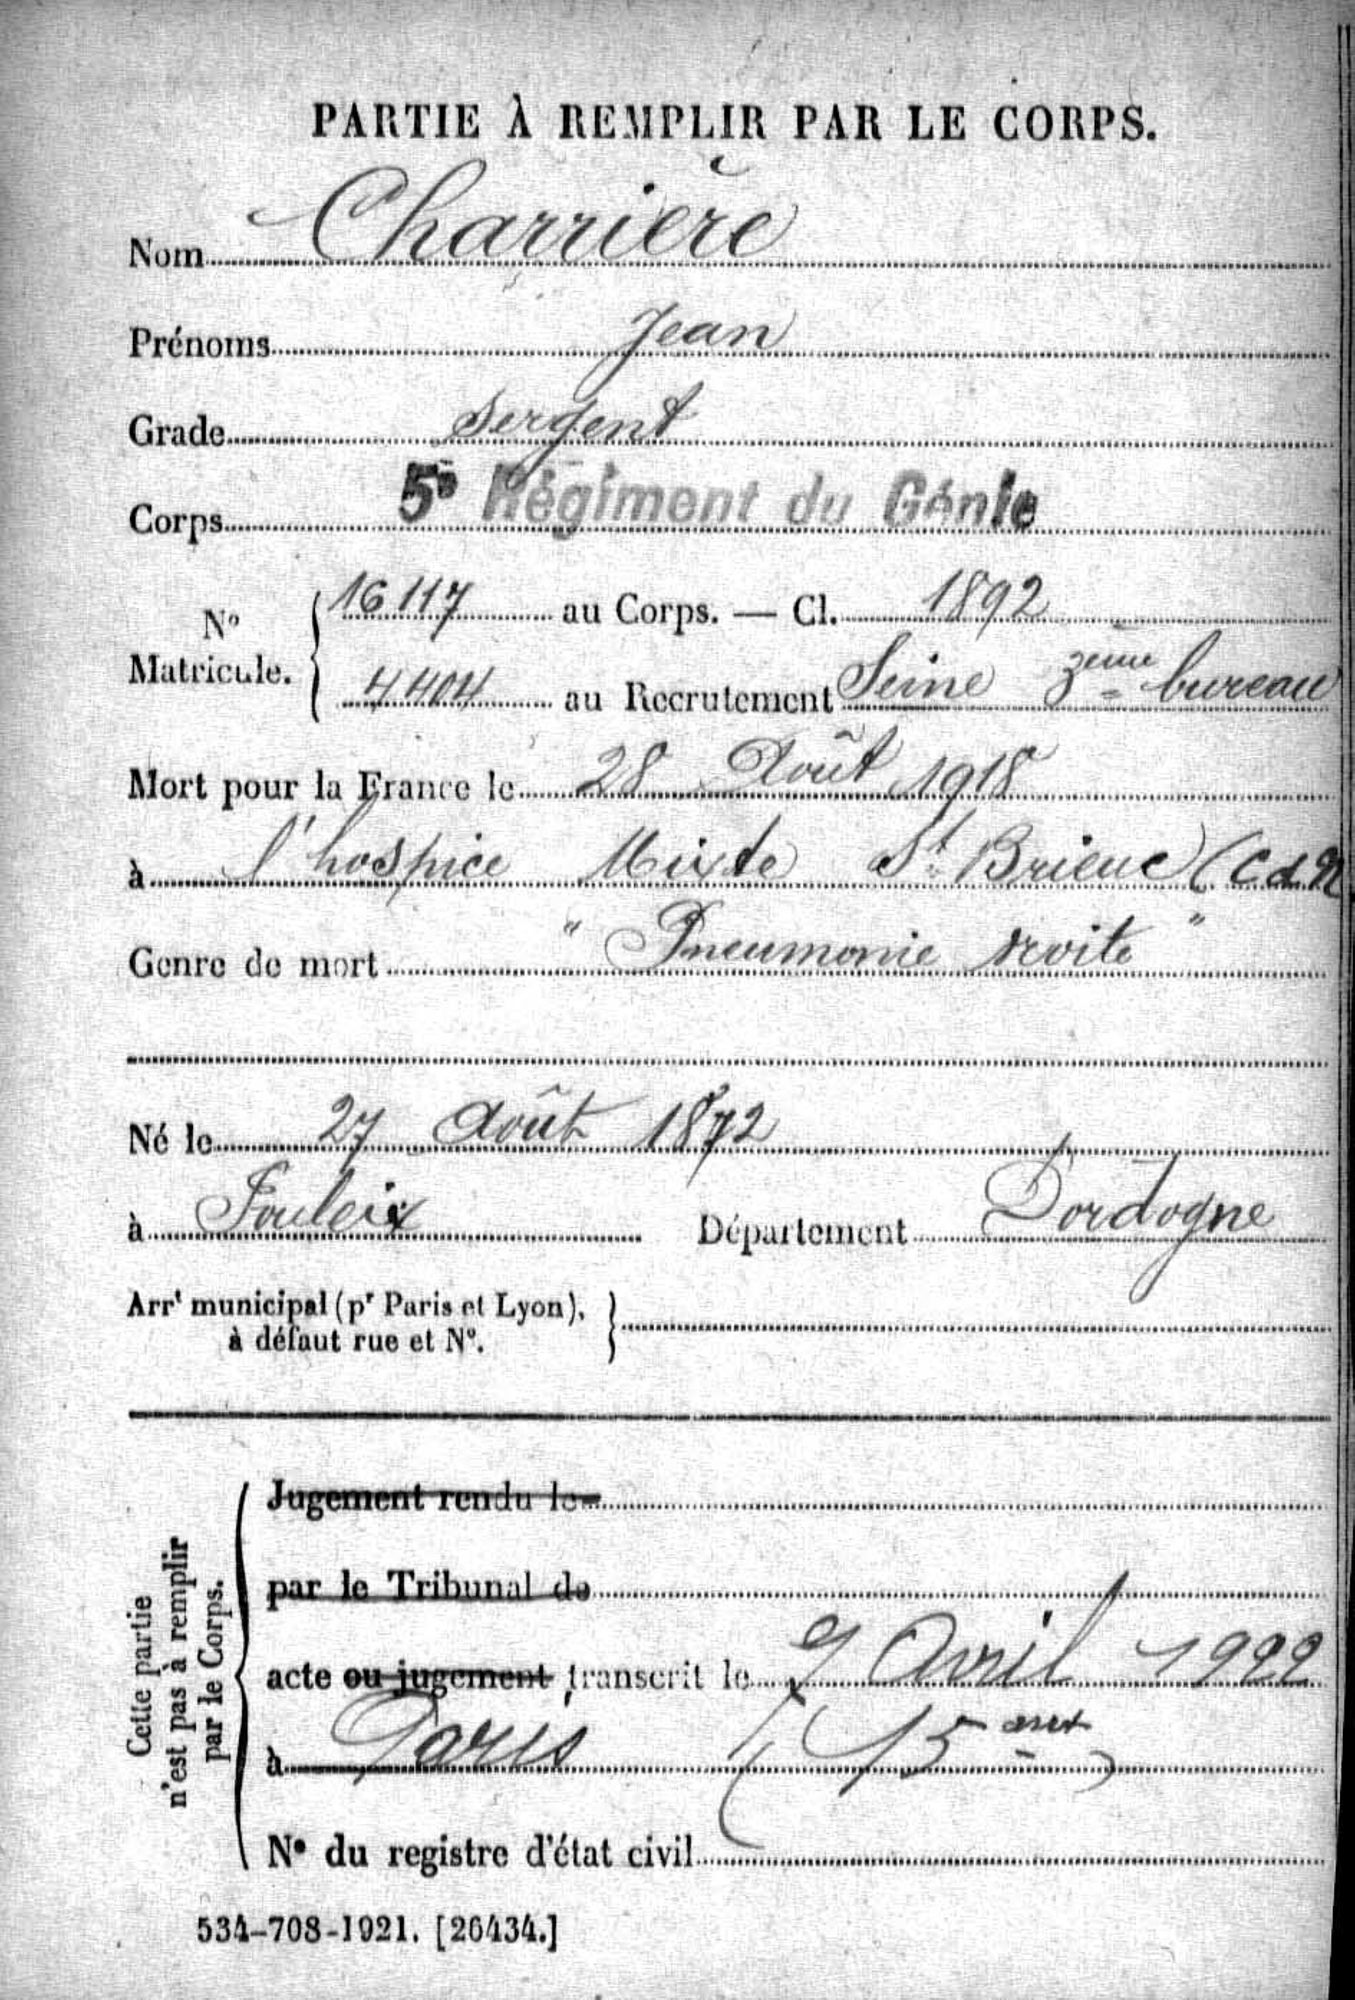 PARTIE À REMPLIR PAR LE CORPS.
Nom Charrière
Prénoms Jean
Grade Sergent
Corps 5e Régiment du Génie
No Matricule. 16117 au Corps. — Cl. 1892
4404 au Recrutement Seine 3ème bureau
Mort pour la France le 28 Août 1918
à l'hospice Mixte St Brieuc (C d N
Genre de mort " Pneumonie droite "
Né le 27 Août 1872
à Fouleix Département Dordogne
Arrt municipal (pr Paris et Lyon),
à défaut rue et No.
Cette partie
n'est pas à remplir
par le Corps.
Jugement rendu le
par le Tribunal de
acte ou jugement transcrit le 7 Avril 1922
à Paris (15 arrt)
No du registre d'état civil
534-708-1921. [26434.]